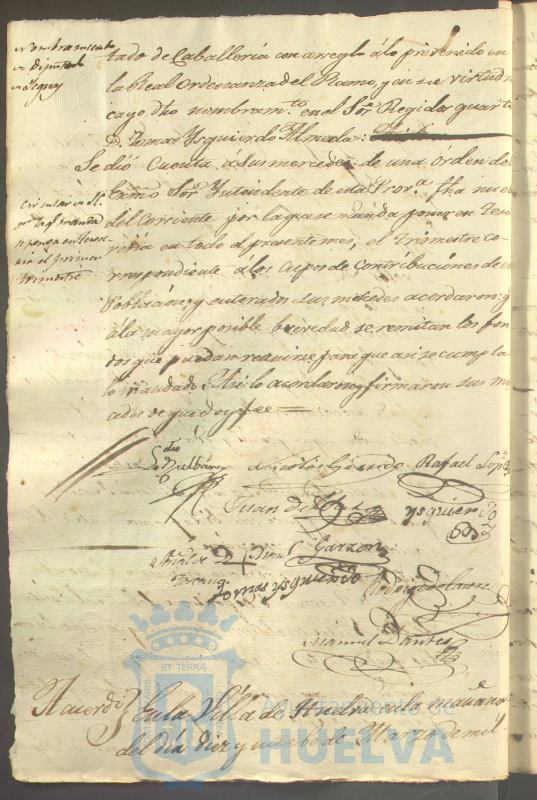 Nombramiento
de Diputado
de Yeguas
tado de Caballeria con arreglo à lo prevenido en
la Real Ordenanza del Ramo, y en su virtud
cayo dho nombram.to en el Sor. Regidor quarto
D. Tomas Ysquierdo Almeda:
Se dió Cuenta a sus mercedes de una Orden del
Circular en
que se manda
se ponga en Tesore-
ria el primer
trimestre
Sor. Yntendente de esta Prov.a fha nueve
del Corriente por la que se manda poner en Teso
reria en todo el presente mes, el trimestre co-
rrespondiente à los Cupos de Contribuciones de esta
Poblacion; y enterados sus mercedes acordaron: q.
à la mayor posible brevedad se remitan los fon
dos que puedan reunirse para que asi se cumpla
lo mandado. Asi lo acordaron y firmaron sus mer
cedes de que doy fee =
Nicolas Garrido Rafael Lopez
Juan de
Ysquierdo
Garzon
Tomas Ysquierdo
Manuel Dantes
ET TERRÆ
Acuerdo
En la Villa de Huelva en la mañana
del dia diez y nuebe de Marzo de mil
Ayuntamiento de
HUELVA